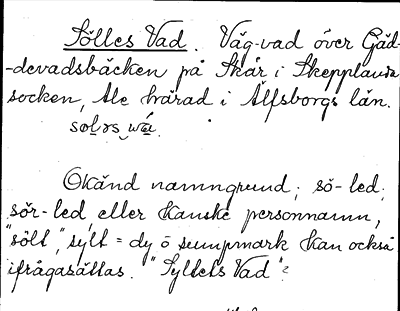 Sölles Vad. Väg-vad över Gäd-
-devadsbäcken på Skår i Skepplanda
socken, Ale härad i Älfsborgs län.
sɷləs wá.
Okänd namngrund; sö-led,
sör-led, eller kanske personnamn,
"sölt", sylt = dy o sumpmark kan också
ifrågasättas. "Syltets Vad"?